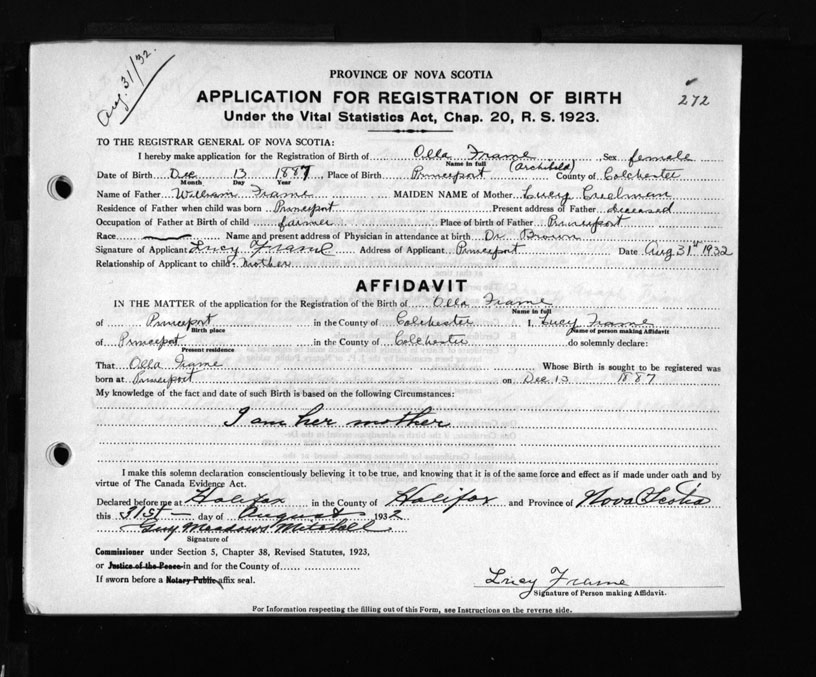 Aug. 31/32.
PROVINCE OF NOVA SCOTIA
272
APPLICATION FOR REGISTRATION OF BIRTH
Under the Vital Statistics Act, Chap. 20, R. S. 1923.
TO THE REGISTRAR GENERAL OF NOVA SCOTIA:
I hereby make application for the Registration of Birth of Olla Frame (Archibald) Sex female
Name in full
Date of Birth Dec 13 1887 Place of Birth Princeport County of Colchester
Month Day Year
Name of Father William Frame MAIDEN NAME of Mother Lucy Creelman
Residence of Father when child was born Princeport Present address of Father deceased
Occupation of Father at Birth of child farmer Place of birth of Father Princeport
Race Name and present address of Physician in attendance at birth Dr Brown
Signature of Applicant Lucy Frame Address of Applicant Princeport Date Aug 31st 1932
Relationship of Applicant to child mother
AFFIDAVIT
IN THE MATTER of the application for the Registration of the Birth of Olla Frame
Name in full
of Princeport in the County of Colchester I, Lucy Frame
Birth place Name of person making Affidavit
of Princeport in the County of Colchester do solemnly declare:
Present residence
That Olla Frame Whose Birth is sought to be registered was
born at Princeport on Dec 13 1887
My knowledge of the fact and date of such Birth is based on the following Circumstances:
I am her mother
I make this solemn declaration conscientiously believing it to be true, and knowing that it is of the same force and effect as if made under oath and by
virtue of The Canada Evidence Act.
Declared before me at Halifax in the County of Halifax and Province of Nova Scotia
this 31st day of August 1932
Guy Meadows Mitchell
Signature of
Commissioner under Section 5, Chapter 38, Revised Statutes, 1923,
or Justice of the Peace in and for the County of
If sworn before a Notary Public affix seal.
Lucy Frame
Signature of Person making Affidavit.
For Information respecting the filling out of this Form, see Instructions on the reverse side.